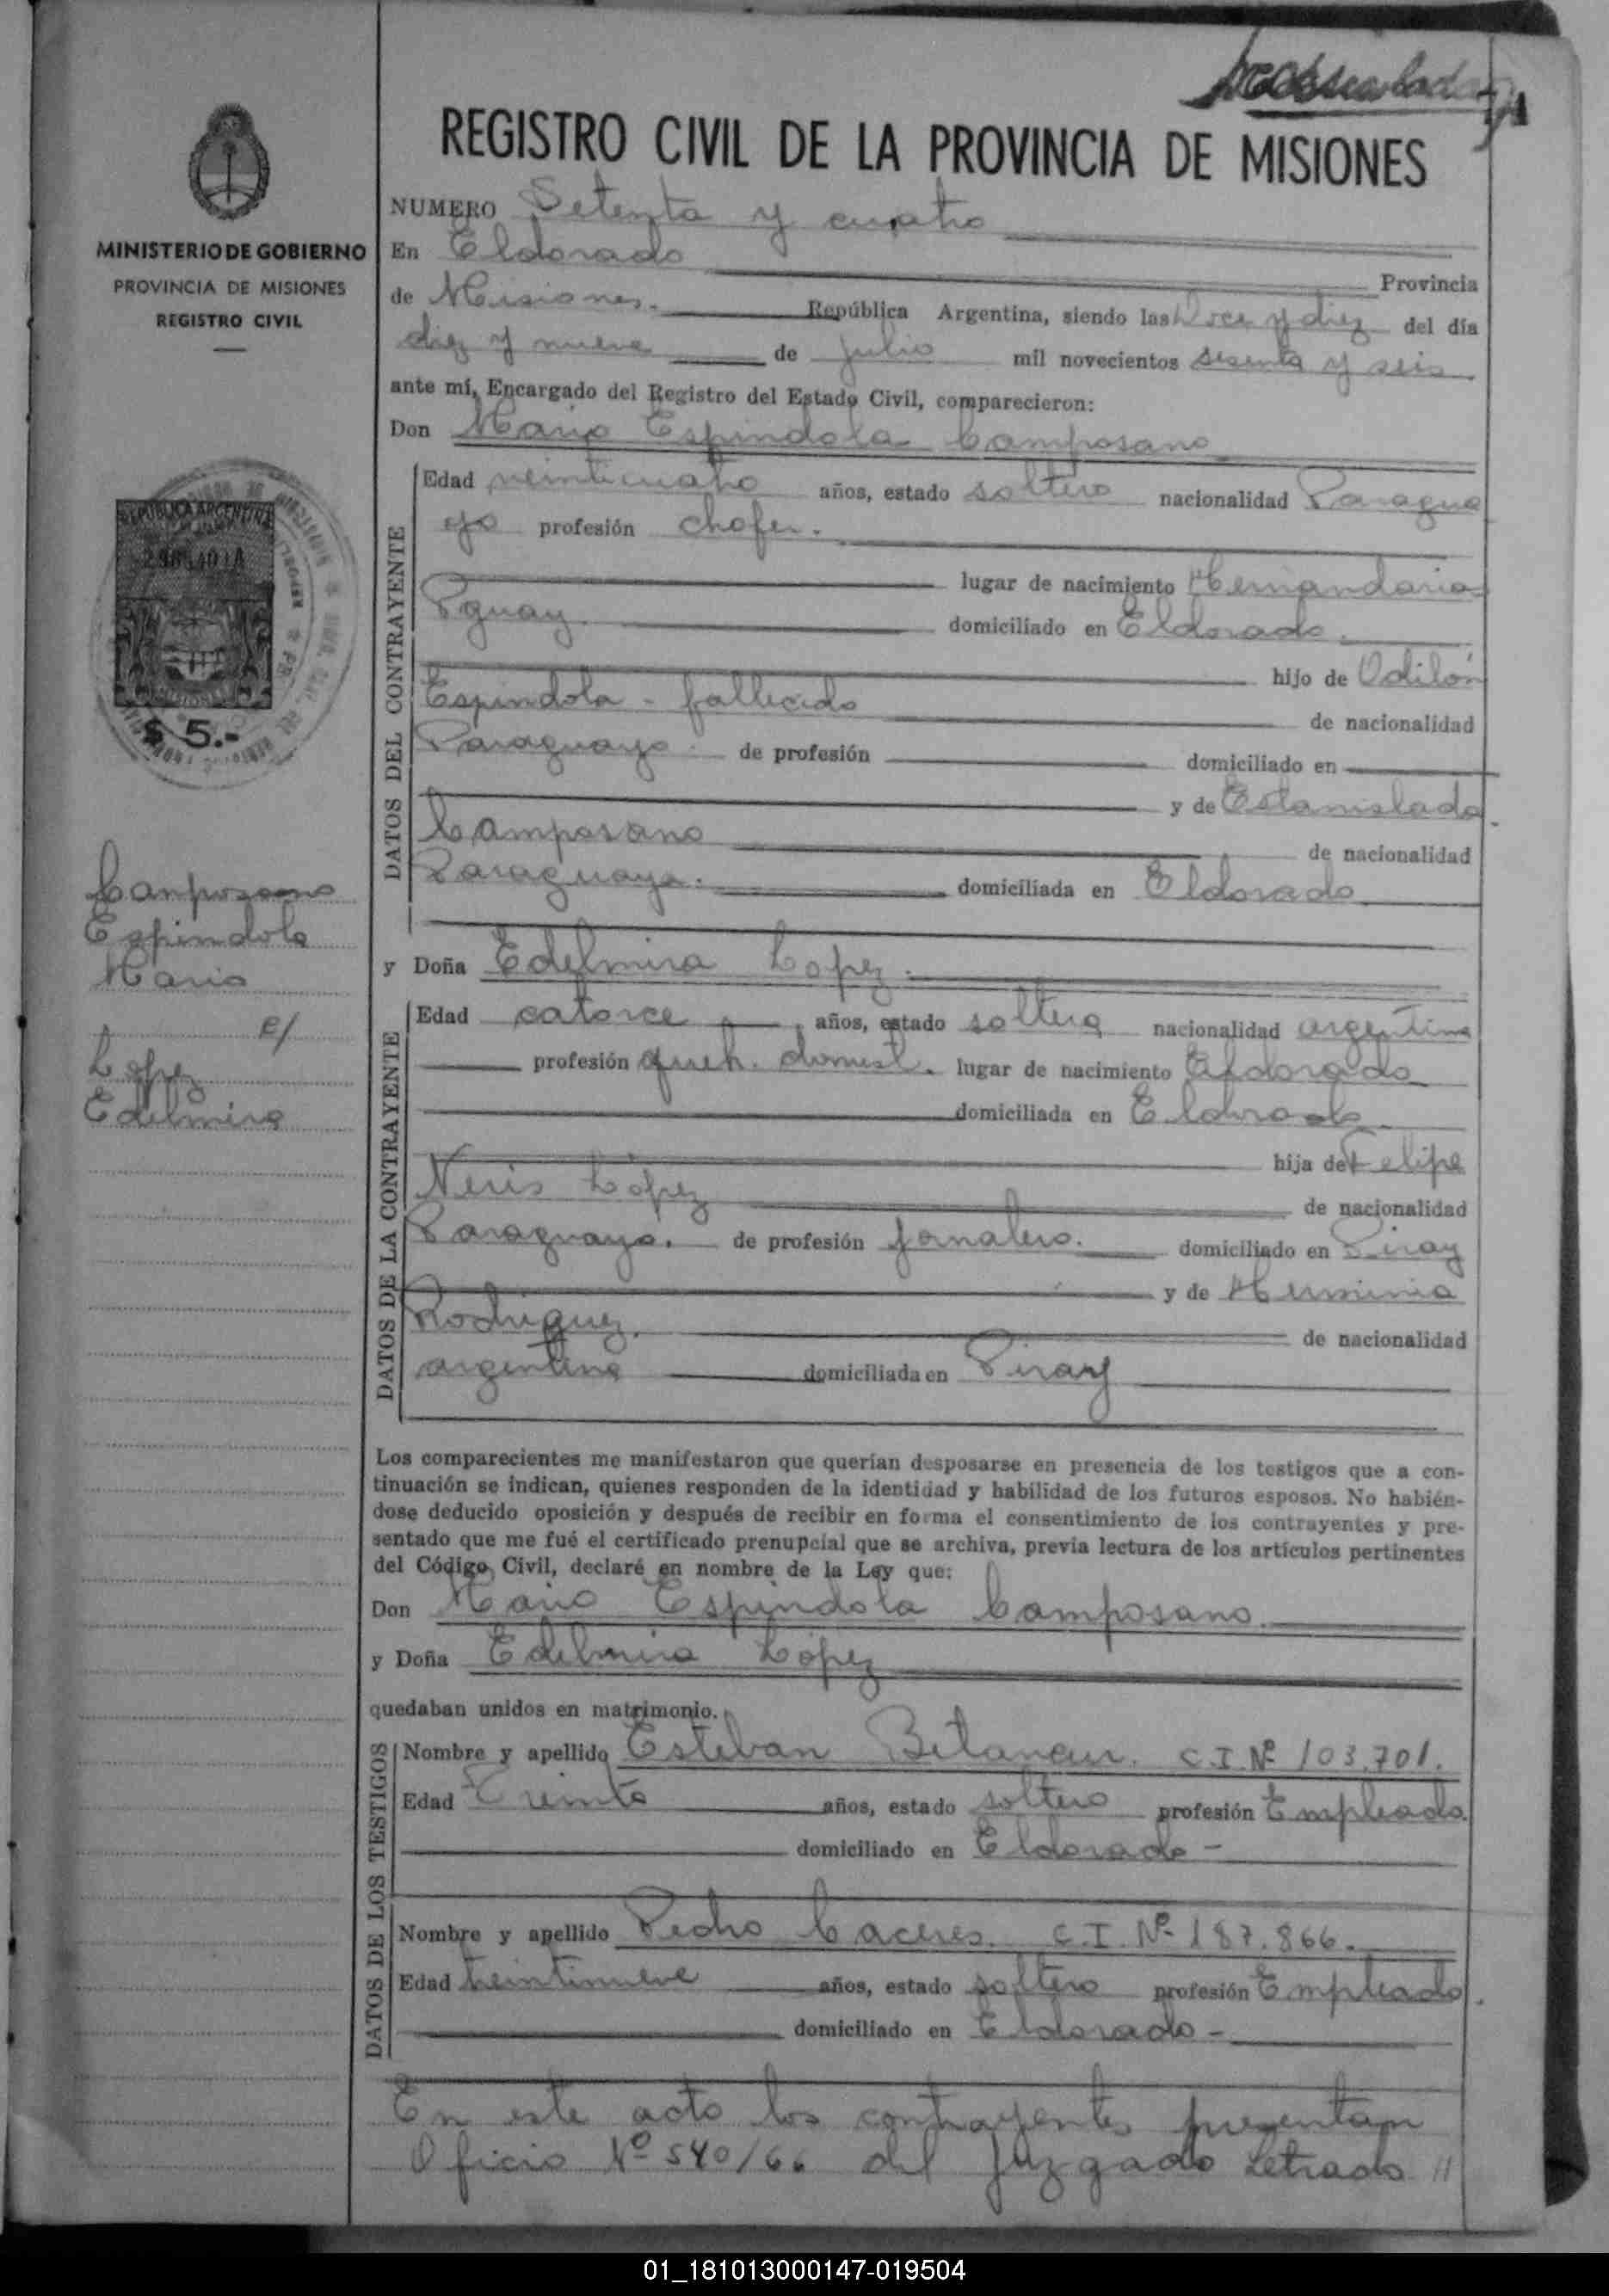 REGISTRO CIVIL DE LA PROVINCIA DE MISIONES
MINISTERIO DE GOBIERNO
PROVINCIA DE MISIONES
REGISTRO CIVIL
REPUBLICA ARGENTINA
$ 5.-
Camposano
Espindola
Mario
c/
Lopez
Edelmira
NUMERO Setenta y cuatro
En Eldorado Provincia
de Misiones. República Argentina, siendo las Doce y diez del día
diez y nueve de Julio mil novecientos sesenta y seis
ante mí, Encargado del Registro del Estado Civil, comparecieron:
Don Mario Espindola Camposano
DATOS DEL CONTRAYENTE
Edad veinticuatro años, estado soltero nacionalidad Paragua
yo profesión chofer.
lugar de nacimiento Hernandarias
Pguay. domiciliado en Eldorado.
hijo de Odilón
Espindola - fallecido de nacionalidad
Paraguayo. de profesión domiciliado en
y de Estanislada
Camposano de nacionalidad
Paraguaya. domiciliada en Eldorado
y Doña Edelmira Lopez.
DATOS DE LA CONTRAYENTE
Edad catorce años, estado soltera nacionalidad argentina
profesión queh. domest. lugar de nacimiento Eldorado
domiciliada en Eldorado
hija de Felipe
Neris López de nacionalidad
Paraguayo. de profesión jornalero. domiciliado en Piray
y de Herminia
Rodriguez. de nacionalidad
argentina domiciliada en Piray
Los comparecientes me manifestaron que querían desposarse en presencia de los testigos que a con-
tinuación se indican, quienes responden de la identidad y habilidad de los futuros esposos. No habién-
dose deducido oposición y después de recibir en forma el consentimiento de los contrayentes y pre-
sentado que me fué el certificado prenupcial que se archiva, previa lectura de los artículos pertinentes
del Código Civil, declaré en nombre de la Ley que:
Don Mario Espindola Camposano.
y Doña Edelmira López
quedaban unidos en matrimonio.
DATOS DE LOS TESTIGOS
Nombre y apellido Esteban Betancur. C.I. Nº 103.701.
Edad Treinta años, estado soltero profesión Empleado.
domiciliado en Eldorado -
Nombre y apellido Pedro Caceres. C.I. Nº 187.866.
Edad treintinueve años, estado soltero profesión Empleado.
domiciliado en Eldorado -
En este acto los contrayentes presentan
Oficio Nº 540/66 del Juzgado Letrado //
01_181013000147-019504